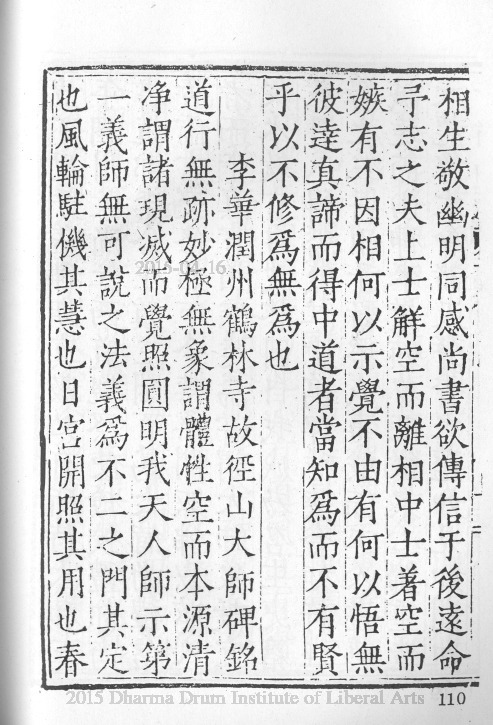 相生敬幽明同感尚書欲傳信于後遠命
予志之夫上士解空而離相中士著空而
嫉有不因相何以示覺不由有何以悟無
彼達真諦而得中道者當知為而不有賢
乎以不修為無為也
李華潤州鶴林寺故徑山大師碑銘
道行無跡妙極無象謂體性空而本源清
净謂諸現滅而覺照圓明我天人師示第
一義師無可說之法義為不二之門其定
也風輪駐機其慧也日宮開照其用也春
2015-04-16
2015 Dharma Drum Institute of Liberal Arts
110